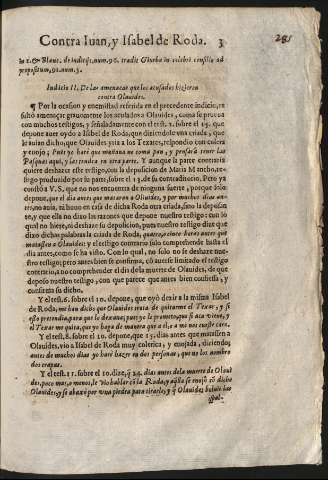 Contra Iuan, y Isabel de Roda. 3
281
in l. & Blanc. de indicijs, num. 96. tradit Gurba in celebri consilio ad
propositum, 91. num. 3.
Indicio II. De las amenaças que los acusados hizieron
contra Olauides.
¶ Por la ocasion y enemistad referida en el precedente indicio, re-
sultò amenaçar grauemente los acusados a Olauides, como se prueua
con muchos testigos, y señaladamente con el test. 2. sobre el 15. que
depone auer oydo a Isabel de Roda, que diziendole vna criada, que
le auian dicho, que Olauides yua a los Texares, respondio con colera
y enojo; Pues yo harè que mañana no coma pan, y pensarà tener las
Pasquas aqui, y las tendra en otra parte. Y aunque la parte contraria
quiere deshazer este testigo, con la deposicion de Maria Mancho, tes-
tigo producido por la parte, sobre el 15. de su contradictorio. Pero ya
consta a V. S. que no nos encuentra de ninguna suerte, porque solo
depone, que el dia antes que matassen a Olauides, y por muchos dias an-
tes, no auia, ni huuo en casa de dicha Roda otra criada, sino la deposan-
te, y que ella no dixo las razones que depone nuestro testigo: con lo
qual no hiere, ni deshaze su deposicion, pues nuestro testigo dize que
dixo dichas palabras la criada de Roda, quatro, ò cinco horas antes que
matassen a Olauides: y el testigo contrario solo comprehende hasta el
dia antes, como se ha visto. Con lo qual, no solo no se deshaze nues-
tro testigo; pero antes bien se confirma, cõ auerse limitado el testigo
contrario, a no comprehender el dia de la muerte de Olauides, de que
depone nuestro testigo, con que parece que antes bien confiessa, y
consiente su dicho.
Y el test. 6. sobre el 10. depone, que oyò dezir a la misma Isabel
de Roda, me han dicho que Olauides trata de quitarme el Texar, y si
esto pretendia, para que le dexaua; pues yo le prometo, que si acà viene, y
el Texar me quita, que yo haga de manera que a el, a mi nos cueste caro.
Y el test. 8. sobre el 10. depone, que 15. dias antes que matassen a
Olauides, vio a Isabel de Roda muy colerica, y enojada, diziendo;
antes de muchos dias yo harè hazer en dos personas, que no los nombro
dos trapas.
Y el test. 11. sobre el 10. dize, q̃ 24. dias antes de la muerte de Olaui-
des, poco mas, o menos, le vio hablar cõ la Roda, y aq̃lla se enojò cõ dicho
Olauides, y se abaxò por vna piedra para tirarle, y q̃ Olauides boluio las
espal-